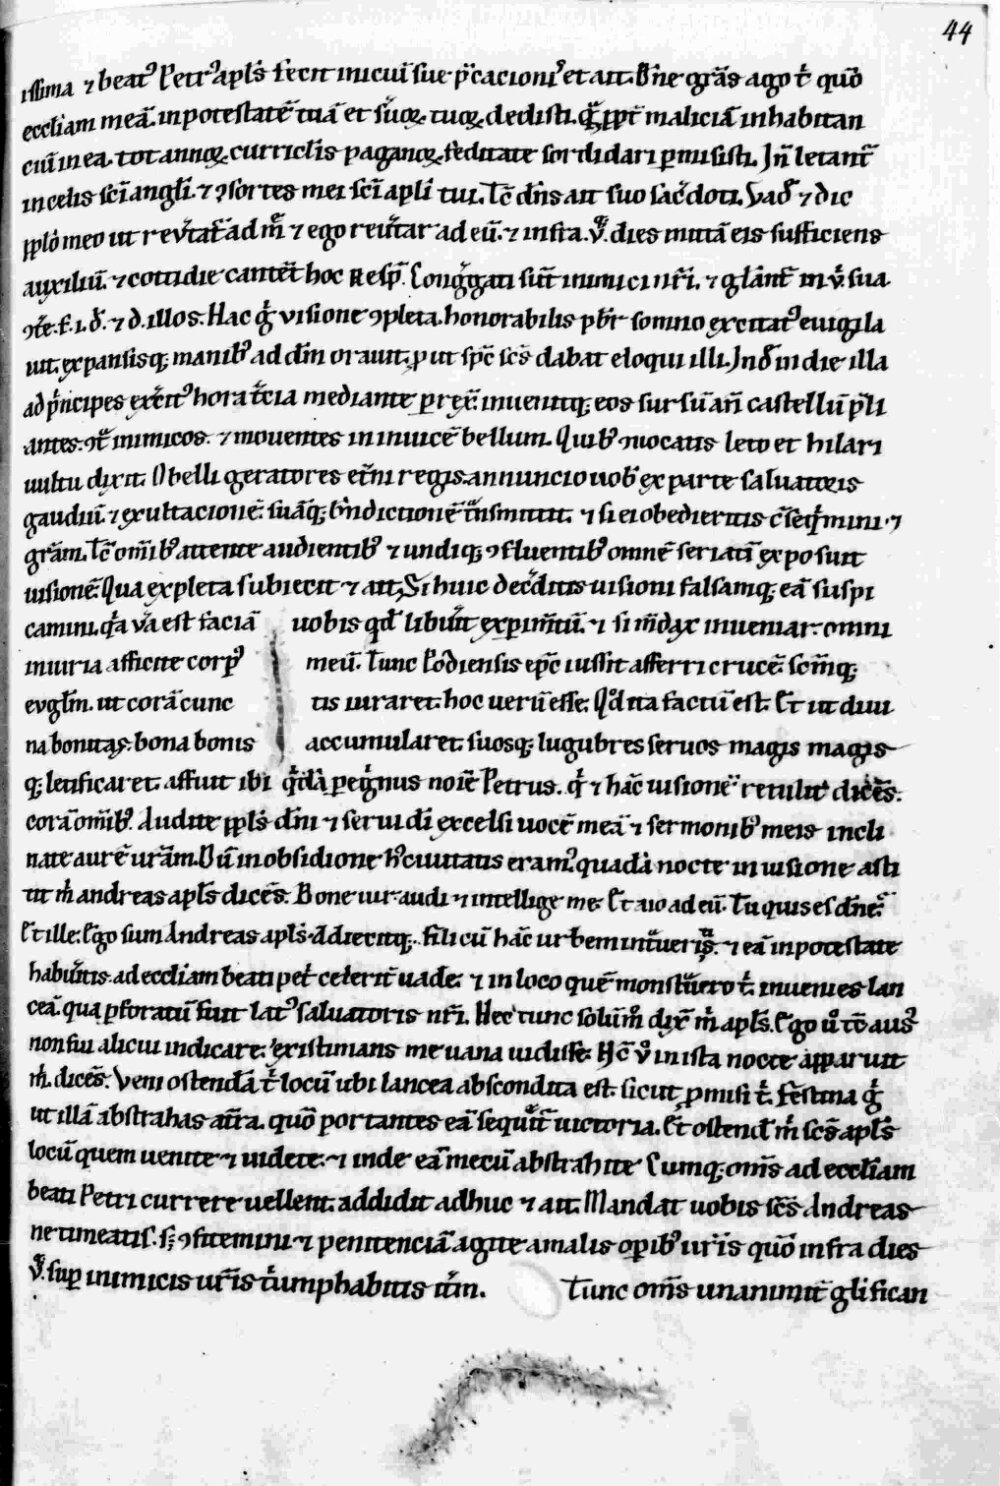 44
issima ⁊ beatꝰ Petrꝰ apl̄s fecit in cui᷑ sue p̄cacioni᷑ et ait. Dn̄e grãs ago t᷑ quō
eccl̄iam meã. in potestatē tuã et suoꝝ. tuoꝝ dedisti. malicia᷑ inhabitan
ciū in ea. tot annoꝝ curricl̄is paganoꝝ. feditate sordidari ꝑmisisti. Jn̄ letant᷑
in celis sc̄i angl̄i. ⁊ ꝯsortes mei sc̄i apl̄i tui. Tc̄ dn̄s ait suo sac᷑doti. Vad᷑ ⁊ dic
ppl̄o meo ut reu᷑tat᷑ ad m᷑ ⁊ ego reu᷑tar ad eū. ⁊ infra .v. dies mittã eis sufficiens
auxiliū. ⁊ cottidie cantēt hoc Resp̄. Cong᷑gati sūt inimici nr̄i. ⁊ gl̄ant᷑ in v᷑ sua.
ꝯt̄e. f. i. d᷑. ⁊ d. illos. Hac g᷑ visione ꝯpleta. honorabilis pb̄r somno excitatꝰ euigila
uit. expansisqꝫ manibꝰ ad dm̄ orauit. ꝓ ut sp̄c sc̄s dabat eloqui illi. Jnd᷑ in die illa
ad p᷑ncipes ex᷑citꝰ hora t᷑cia mediante ꝑrex̄. inuenitqꝫ eos sursū an̄ castellū p̄li
antes. ꝯt᷑ inimicos. ⁊ mouentes in inuicē bellum. Quibꝰ ꝯuocatis leto et hilari
uultu dixit. O belligeratores et̄ni regis. annuncio uob᷑ ex parte saluatoris
gaudiū. ⁊ exultacionē. suãqꝫ bn̄dictionē t᷑nsmittit. ⁊ si ei obedieritis c̄seq᷑mini. ⁊
grãm. Tc̄ om̄ibꝰ attente audientibꝰ ⁊ undiqꝫ ꝯfluentibꝰ omnē seriatī exposuit
uisionē. Qua expleta subiecit ⁊ ait. Si huic dec᷑ditis uisioni falsamqꝫ eã suspi
camini. q᷑a u᷑a est faciã uobis qd̄ libu᷑it exꝑim̄tū. ⁊ si m̄dax inueniar. omni
iniuria afficite corpꝰ meū. Tunc Podiensis ep̄c iussit afferri crucē. scm̄qꝫ
evgl̄m. ut corã cunc tis iuraret. hoc uerū esse. Qd̄ ita factū est. Et ut diui
na bonitas. bona bonis accumularet. suosqꝫ lugubres seruos magis magis
qꝫ letificaret. affuit ibi q᷑dã ꝑeg᷑nus noīe Petrus. q᷑ ⁊ hãc uisionē retulit dicēs.
corã om̄ibꝰ. Audite ppl̄s dn̄i ⁊ serui dī excelsi uocē meã ⁊ sermonibꝰ meis incli
nate aurē urãm. Dū in obsidione h᷑ ciuitatis eramꝰ. quadã nocte in uisione asti
tit m᷑ andreas apl̄s dicēs. Bone uir. audi ⁊ intellige me. Et aio ad eū. Tu quis es dn̄e.
Et ille. Ego sum Andreas apl̄s. Adiecitqꝫ. fili cū hãc urbem int᷑ueris. ⁊ eã in potestate
habu᷑itis. ad eccl̄iam beati pet᷑ celerit᷑ uade. ⁊ in loco quē monst᷑uero t᷑. inuenies lan
ceã. qua ꝑforatū fuit latꝰ saluatoris nr̄i. Hec tunc solūm dix̄ m᷑ apl̄s. Ego u᷑o t̄c ausꝰ
non fui alicui indicare. existimans me uana uidisse. Hc̄ u᷑o in ista nocte apparuit
m᷑. dicēs. Veni ostendã t᷑ locū ubi lancea abscondita est. sicut ꝓmisi t᷑. festina g᷑
ut illã abstrahas at̄ra. quō portantes eã sequit᷑ uictoria. Et ostend᷑ m᷑ sc̄s apl̄s
locū quem uenite ⁊ uidete. ⁊ inde eã mecū abstrahite. Cumqꝫ om̄s ad eccl̄iam
beati Petri currere uellent. addidit adhuc ⁊ ait. Mandat uobis sc̄s Andreas
ne timeatis. s; ꝯfitemini ⁊ penitenciã agite a malis oꝑibꝰ ur̄is quō infra dies
v. suꝑ inimicis ur̄is t᷑umphabitis it̄m. Tunc om̄s unanimit᷑ gl̄ifican